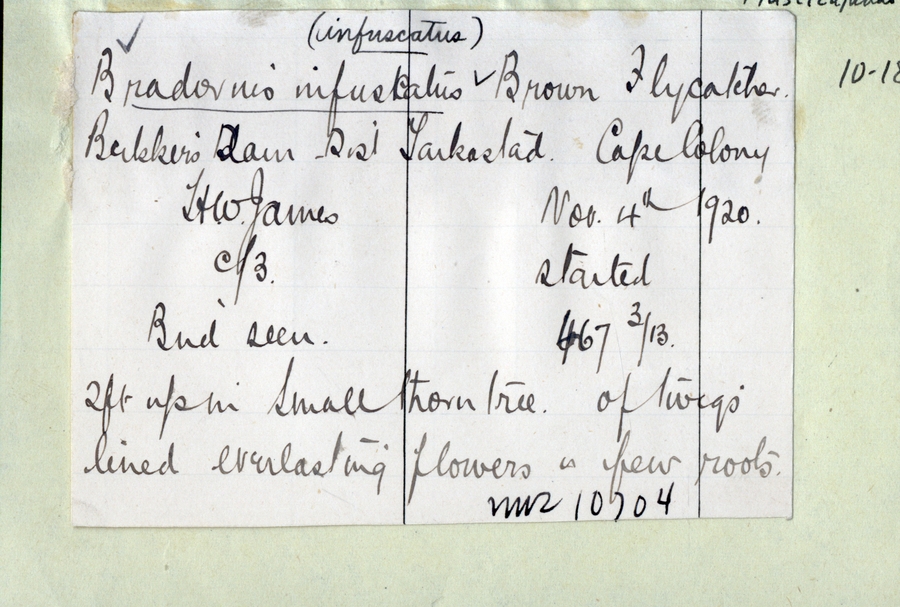 (infuscatus)
10-18
Bradornis infuskatus ✓ Brown Flycatcher.
Bekker's Dam Dist Tarkastad. Cape Colony
H.W. James Nov. 4th 1920.
c/3. started
Bird seen. 467 3/13.
2ft up in small thorn tree. of twigs
lined everlasting flowers & few roots.
10704